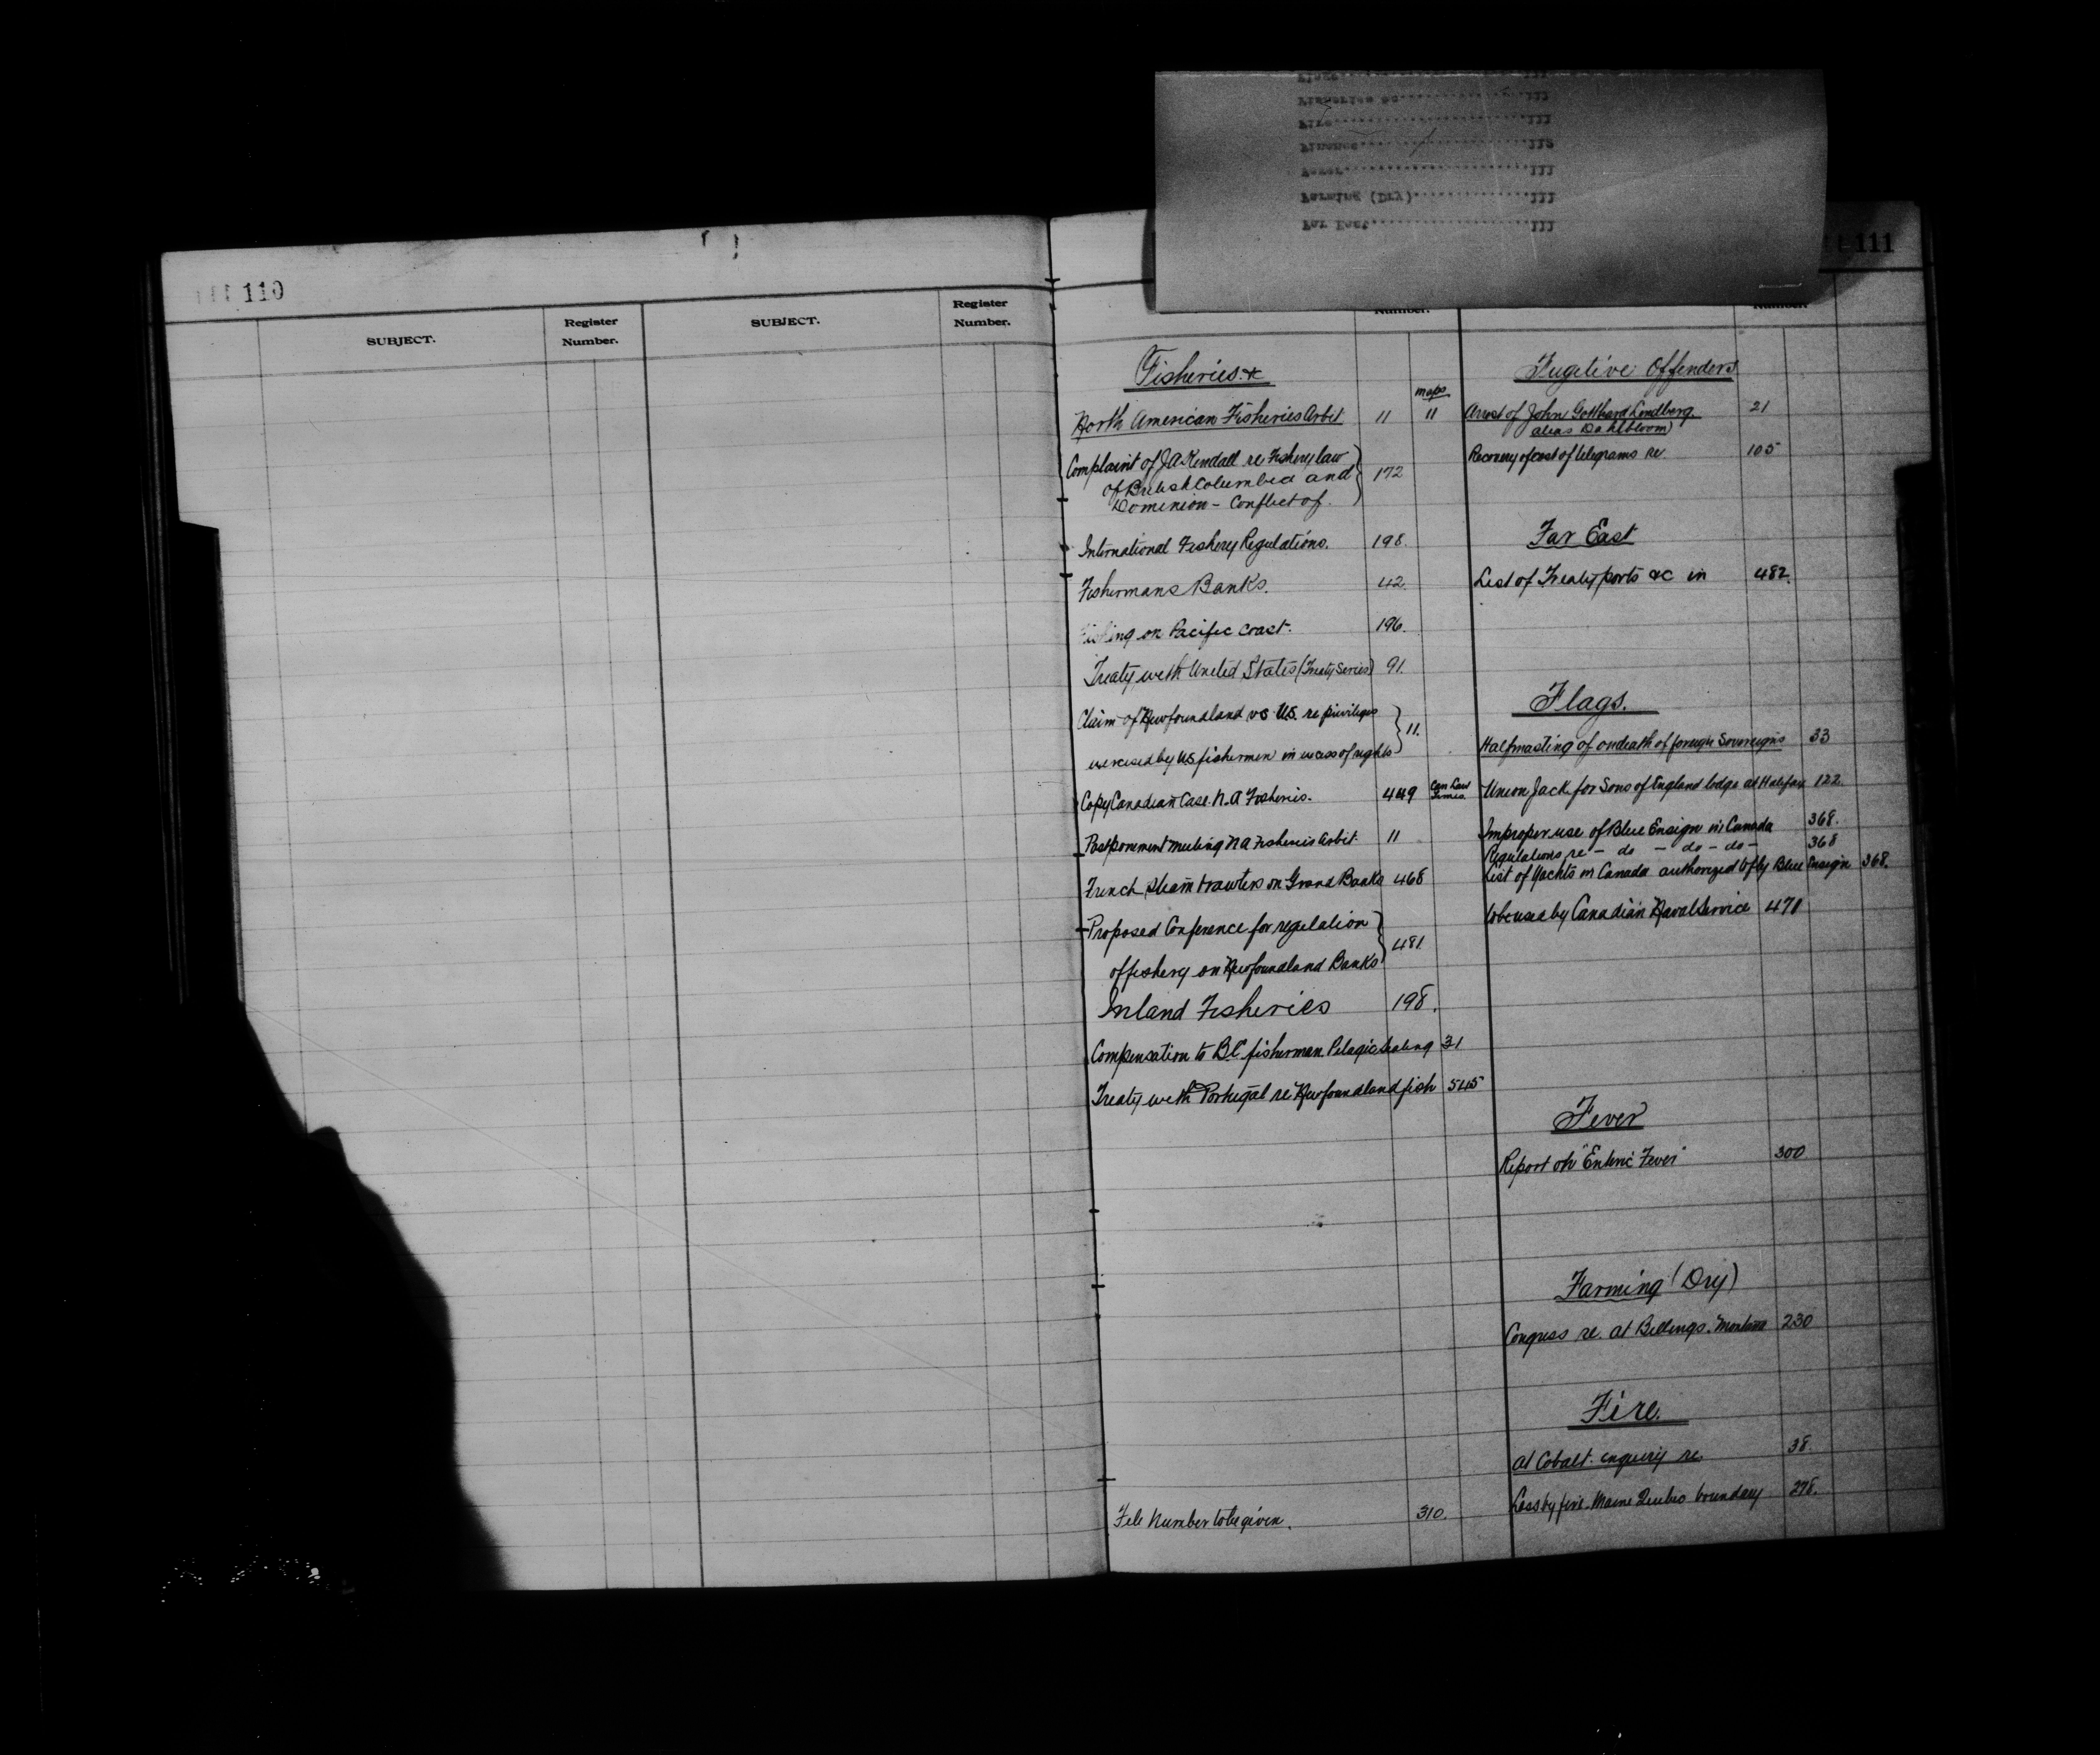 110
SUBJECT.
Register
Number.
SUBJECT.
Register
Number.
111
Number.
Number.
Flags 111
Fisheries &c 111
Fire 111
Finance 112
Fever 111
Farming (Dry) 111
Far East 111
Fisheries. &
maps
North American Fisheries Arbit. 11 11
Complaint of J A Kendall re Fishery law
of British Columbia and
Dominion - Conflict of. 172
International Fishery Regulations. 198.
Fishermans Banks. 42.
Fishing on Pacific Coast. 196.
Treaty with United States (Treaty Series) 91.
Claim of Newfoundland vs U.S. re privileges
exercised by US fishermen in excess of rights 11.
Copy Canadian Case. N. A Fisheries. 449 Can Law Times.
Postponement meeting N A Fisheries Arbit. 11
French steam trawlers on Grand Banks 468
Proposed Conference for regulation
of fishery on Newfoundland Banks 481.
Inland Fisheries 198.
Compensation to B.C. fisherman. Pelagic Sealing 31
Treaty with Portugal re Newfoundland fish 545
File Number to be given. 310.
Fugitive Offenders
Arrest of John Gotthard Lindberg 21
alias Dahlbloom)
Recovery of cost of telegrams re 105
Far East
List of Treaty ports &c in 482.
Flags.
Halfmasting of on death of foreign Sovereigns 33
Union Jack for Sons of England lodge at Halifax 122.
Improper use of Blue Ensign in Canada 368.
Regulations re - do - do - do - 368
List of Yachts in Canada authorized to fly Blue Ensign 368.
to be used by Canadian Naval Service 471
Fever
Report on "Enteric Fever" 300
Farming (Dry)
Congress re. at Billings. Montana 230
Fire.
At Cobalt. enquiry re. 38.
Loss by fire. Maine Quebec boundary 278.